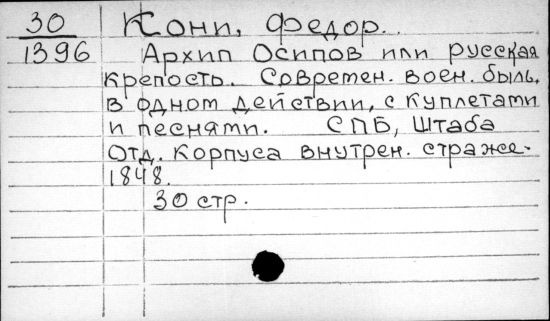 30 Кони, Федор.
1396 Архип Осипов или русская
крепость. Современ. воен. быль,
в одном действии, с куплетами
и песнями. СПБ, Штаба
Отд. корпуса внутрен. страже.
1848.
30 стр.